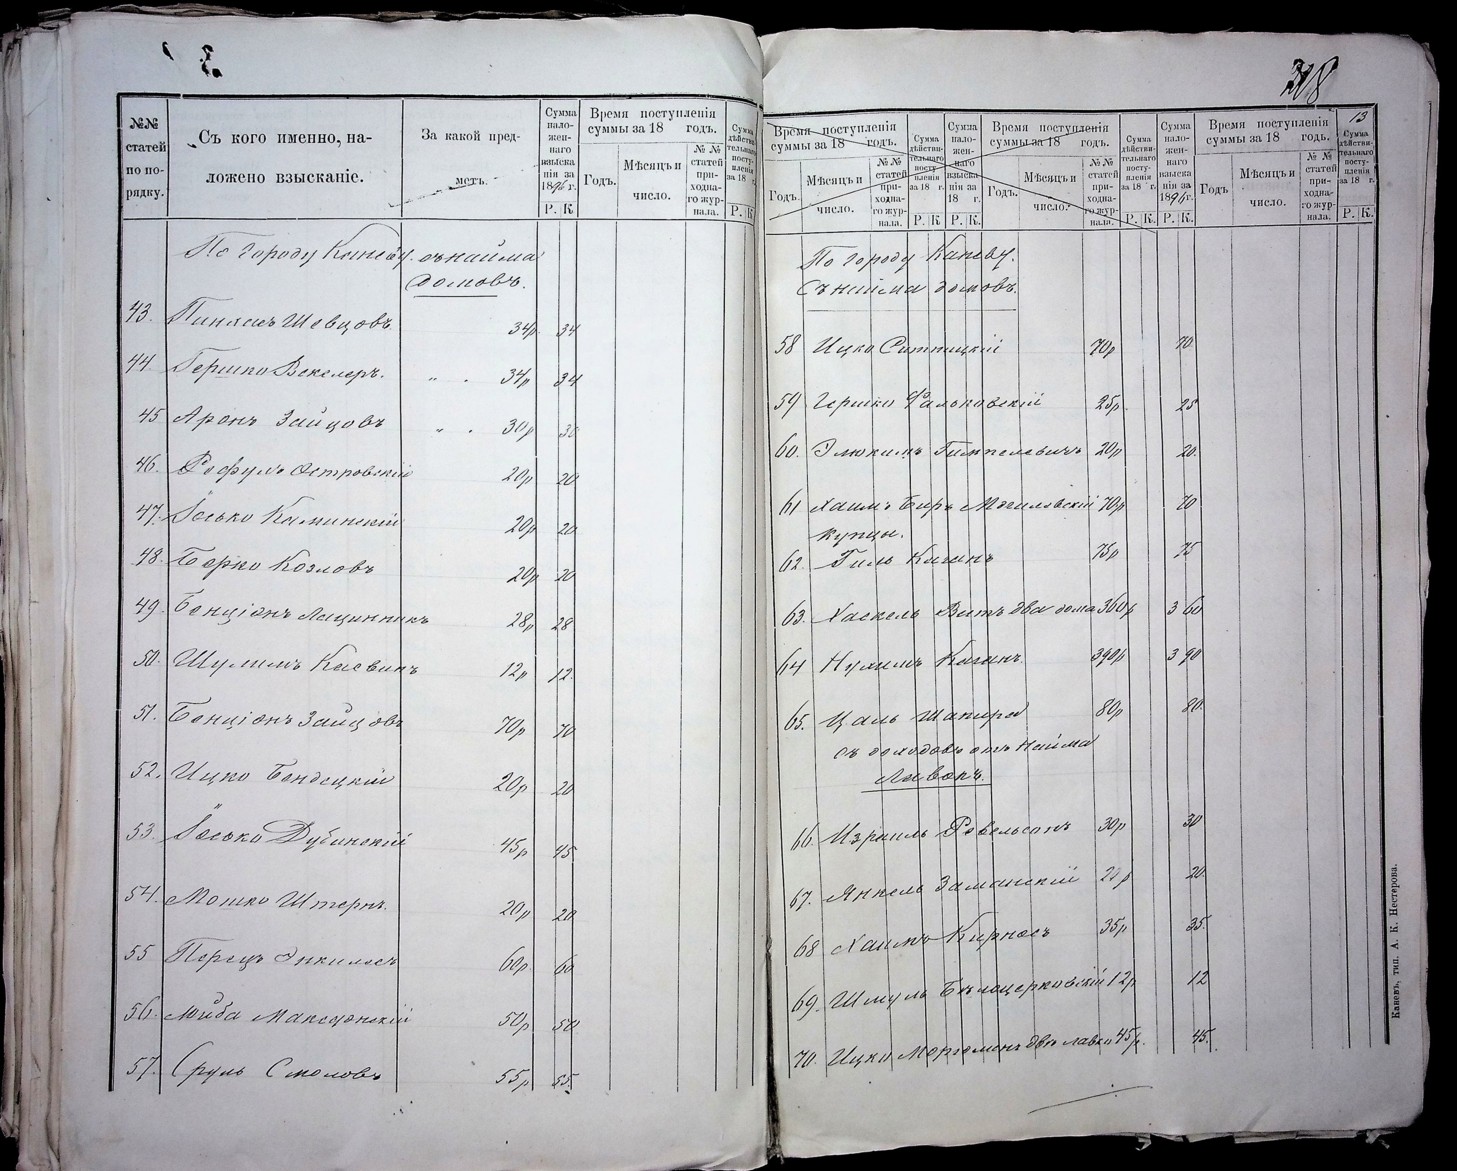 308
13
№№ статей по порядку.
Съ кого именно, наложено взысканіе.
За какой предметъ.
Сумма наложеннаго взысканія за 1896 г.
Р. К.
Время поступленія суммы за 18 годъ.
Годъ.
Мѣсяцъ и число.
№№ статей приходнаго журнала.
Сумма дѣйствительнаго поступленія за 18 г.
Р. К.
По городу Каневу съ найма
домовъ.
43. Пинхасъ Шевцовъ 34р. 34
44. Гершко Векслеръ. " . 34р 34
45 Аронъ Зайцовъ " . 30р 30
46. Рофулъ Островскій 20р 20
47. Іосько Каминскій 20р 20
48. Берко Козловъ 20р 20
49. Бенціонъ 28р 28
50. Шулимъ 12р 12.
51. Бенціонъ Зайцовъ 70р 70
52. Ицко Бендецкій 20р 20
53. Іосько Дубинскій 45р 45
54. Мошко Штернъ. 20р 20
55 Перецъ 60р 60
56. Лейба 50р 50
57. Сруль Смоловъ 55р 55.
Время поступленія суммы за 18 годъ.
Годъ.
Мѣсяцъ и число.
№№ статей приходнаго журнала.
Сумма дѣйствительнаго поступленія за 18 г.
Р. К.
Сумма наложеннаго взысканія за 18 г.
Р. К.
Время поступленія суммы за 18 годъ.
Годъ.
Мѣсяцъ и число.
№№ статей приходнаго журнала.
Сумма дѣйствительнаго поступленія за 18 г.
Р. К.
Сумма наложеннаго взысканія за 1896 г.
Р. К.
Время поступленія суммы за 18 годъ.
Годъ
Мѣсяцъ и число.
№№ статей приходнаго журнала.
Сумма дѣйствительнаго поступленія за 18 г.
Р. К.
По городу Каневу.
Съ найма домовъ.
58 Ицко Ситницкій 70р 70
59 Гершко Фальковскій 25р. 25
60. Элюкимъ Гимпелевичъ 20р 20.
61 Хаимъ Беръ Могилевскій 70р 70
купцы.
62. Гиль Каганъ 75р 75
63. Хаскель Витъ два дома 360р 360
64 Нухимъ Каганъ. 390р 390
65. Цаль Шапиро 80р 80.
съ доходовъ отъ найма
Лавокъ.
66. Израиль Ревельсонъ 30р 30
67. Янкель Заманскій 20р 20
68 Хаимъ Кирносъ 35р 35.
69. Шмуль Бѣлоцерковскій 12р 12
70. Ицко двѣ лавки 45р. 45.
Каневъ, тип. А. К. Нестерова.